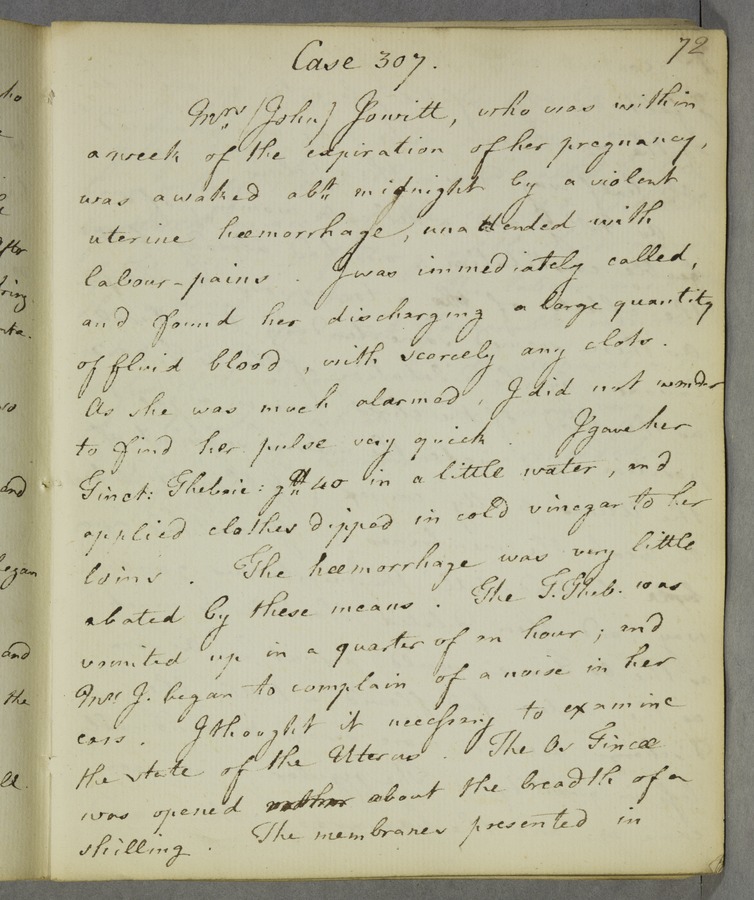 72
Case 307.
Mrs (John) Jowitt, who was within
a week of the expiration of her pregnancy,
was awaked abt midnight by a violent
uterine hæmorrhage, unattended with
labour-pains. I was immediately called,
and found her discharging a large quantity
of fluid blood, with scarcely any clots.
As she was much alarmed, I did not wonder
to find her pulse very quick. I gave her
Tinct: Thebaic: gtt 40 in a little water, and
applied clothes dipped in cold vinegar to her
loins. The hæmorrhage was very little
abated by these means. The T. Theb. was
vomited up in a quarter of an hour; and
Mrs J. began to complain of a noise in her
ears. I thought it necessary to examine
the state of the Uterus. The Os Tincæ
was opened about the breadth of a
shilling. The membranes presented in